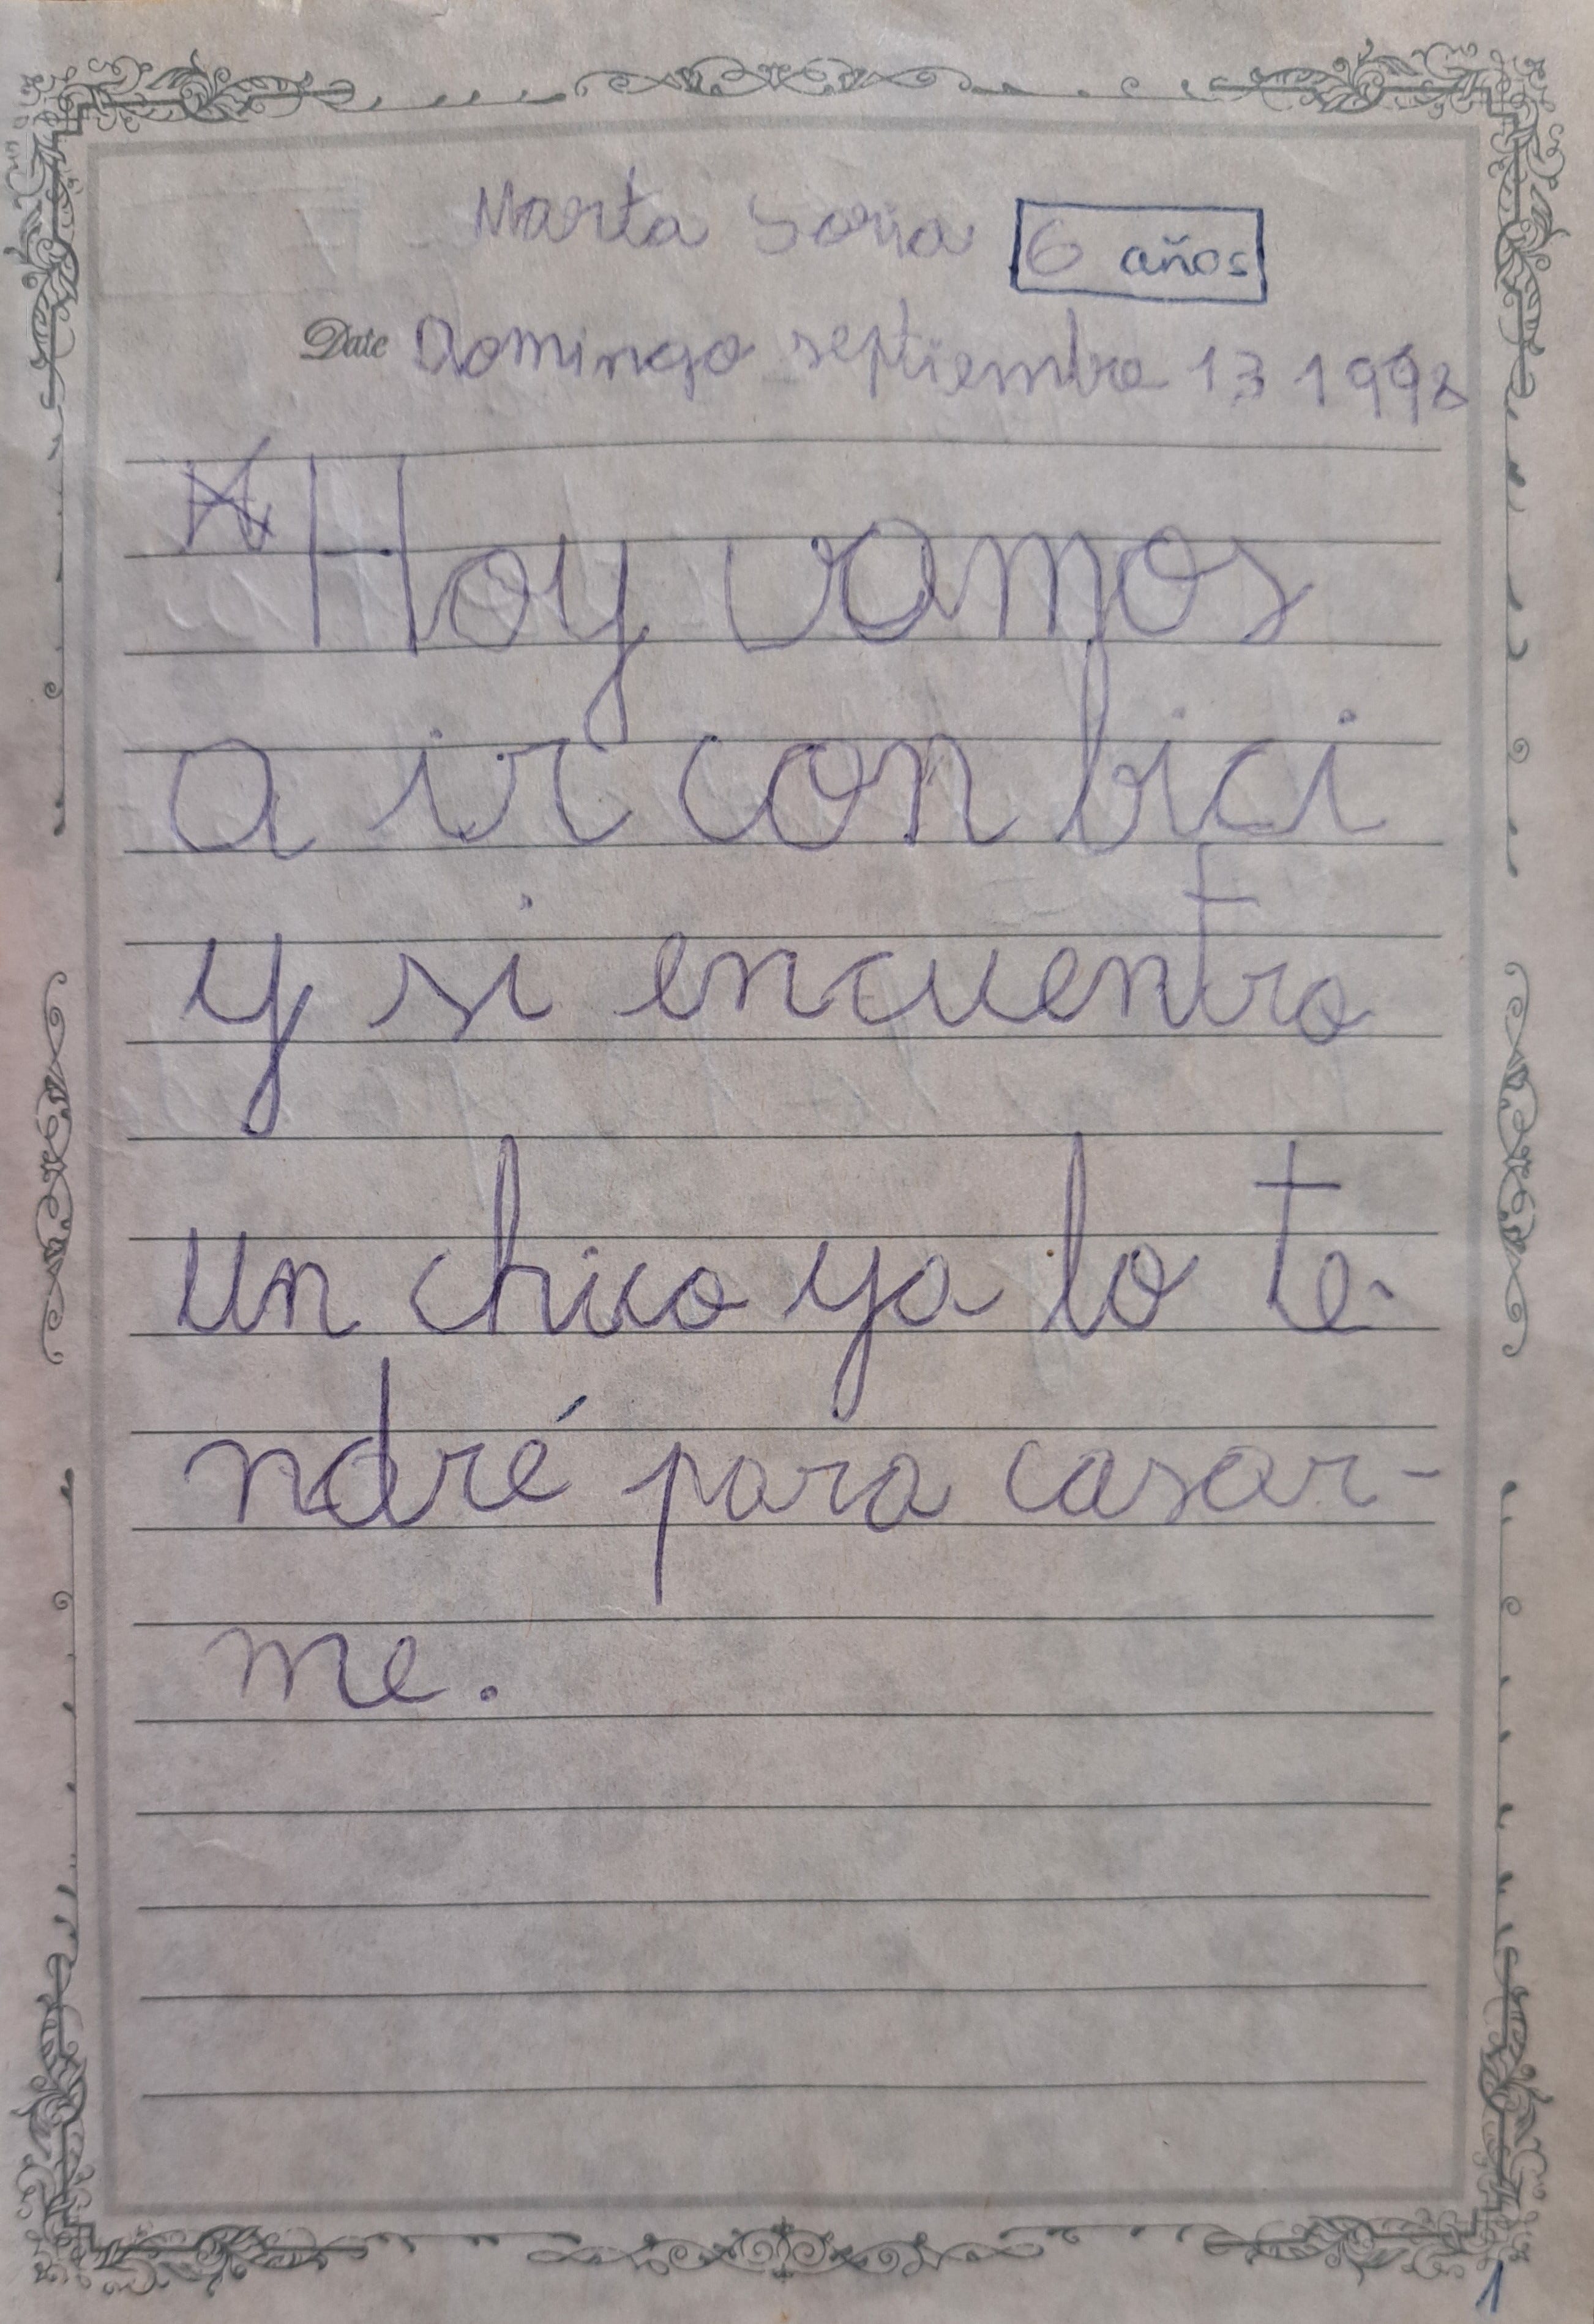 Marta Soria 6 años
Date Domingo septiembre 13 1998
Hoy vamos
a ir con bici
y si encuentro
un chico ya lo te-
ndré para casar-
me.
1